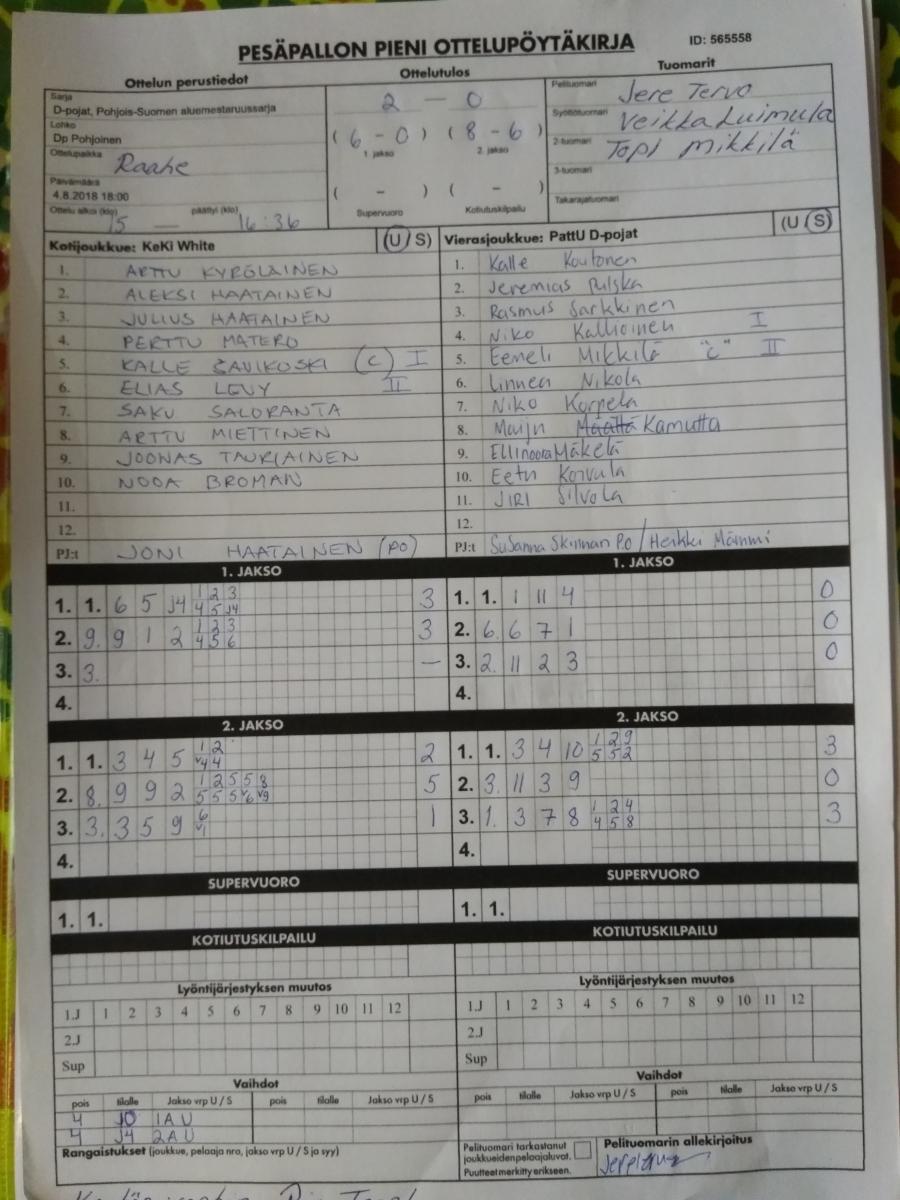 PESÄPALLON PIENI OTTELUPÖYTÄKIRJA ID: 565558
Ottelun perustiedot
Sarja
D-pojat, Pohjois-Suomen aluemestaruussarja
Lohko
Dp Pohjoinen
Ottelupaikka Raahe
Päivämäärä
4.8.2018 18:00
Ottelu alkoi (klo) 15 — päättyi (klo) 16:36
Ottelutulos
2 — 0
( 6 - 0 ) ( 8 - 6 )
1. jakso 2. jakso
( - ) ( - )
Supervuoro Kotiutuskilpailu
Tuomarit
Pelituomari Jere Tervo
Syöttötuomari Veikka Luimula
2-tuomari Topi Mikkilä
3-tuomari
Takarajatuomari
Kotijoukkue: KeKi White (U S)
1. ARTTU KYRÖLÄINEN
2. ALEKSI HAATAINEN
3. JULIUS HAATAINEN
4. PERTTU MATERO
5. KALLE SAVIKOSKI (C) I
6. ELIAS LEVY II
7. SAKU SALORANTA
8. ARTTU MIETTINEN
9. JOONAS TAURIAINEN
10. NOOA BROMAN
11.
12.
PJ:t JONI HAATAINEN (PO)
Vierasjoukkue: PattU D-pojat (U S)
1. Kalle Koutonen
2. Jeremias Pulska
3. Rasmus Sarkkinen
4. Niko Kallioinen I
5. Eemeli Mikkilä "C" II
6. Linnea Nikola
7. Niko Korpela
8. Maiju Määttä Kamutta
9. Ellinoora Mäkelä
10. Eetu Koivula
11. JIRI Silvola
12.
PJ:t Susanna P.O / Heikki
1. JAKSO
1. 1. 6 5 J4 1 2 3 3
4 5 J4
2. 9. 9 1 2 1 2 3 3
4 5 6
3. 3. —
4.
1. JAKSO
1. 1. 1 11 4 0
2. 6. 6 7 1 0
3. 2. 11 2 3 0
4.
2. JAKSO
1. 1. 3 4 5 1 2 2
v4 4
2. 8. 9 9 2 1 2 5 5 8 5
5 5 5 v6 v9
3. 3. 3 5 9 6 1
v1
4.
2. JAKSO
1. 1. 3 4 10 1 2 9 3
5 5 2
2. 3. 11 3 9 0
3. 1. 3 7 8 1 2 4 3
4 5 8
4.
SUPERVUORO
1. 1.
SUPERVUORO
1. 1.
KOTIUTUSKILPAILU
KOTIUTUSKILPAILU
Lyöntijärjestyksen muutos
1.J 1 2 3 4 5 6 7 8 9 10 11 12
2.J
Sup
Lyöntijärjestyksen muutos
1.J 1 2 3 4 5 6 7 8 9 10 11 12
2.J
Sup
Vaihdot
pois tilalle Jakso vrp U / S pois tilalle Jakso vrp U / S
4 10 1A U
4 J4 2A U
Vaihdot
pois tilalle Jakso vrp U / S pois tilalle Jakso vrp U / S
Rangaistukset (joukkue, pelaaja nro, jakso vrp U / S ja syy)
Pelituomari tarkastanut
joukkueiden pelaajaluvat.
Puutteet merkitty erikseen.
Pelituomarin allekirjoitus